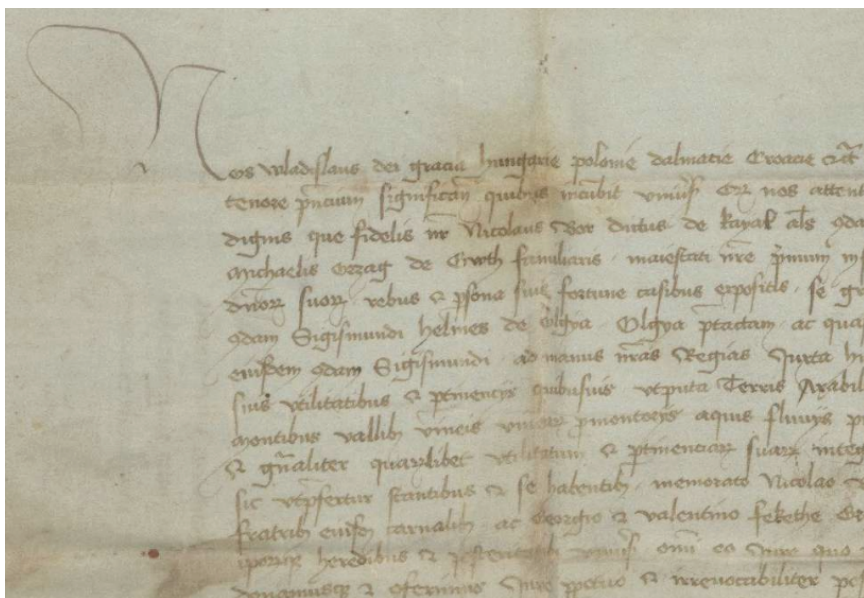 Nos wladislaus dei gracia hungarie polonie dalmatie Croacie etc
tenore pncium significam quibus incubit vniuersis nos attent
dignis que fidelis nr Nicolaus Bor dictus de kayal als qda
Michaelis Orzag de Gwth familiaris maiestati nre pmum
dnor suor rebus & psona sue fortune casibus expositis se gr
qdam Sigismundi helmes de Olgya Olgya ptactam ac qua
eiusdem qdam Sigismundi ad manus nras Regias Juxta
suis vtilitatibus & ptinencys quibusuis vtputa Terris Arabil
montibus vallib vineis vinear pmontorys aquis fluuys pi
& gnaliter quarlibet vtilitatum & ptinenciar suar integ
sic vtpfertur stantibus & se habentib memorato Nicolao
fratrib eiusdem carnalib ac Georgio & valentino fekethe
ipsorq heredibus & posteritatib vniuersis omi eo Jure quo
donamusq & oferimus Jure ppetuo & irreuocabiliter pos